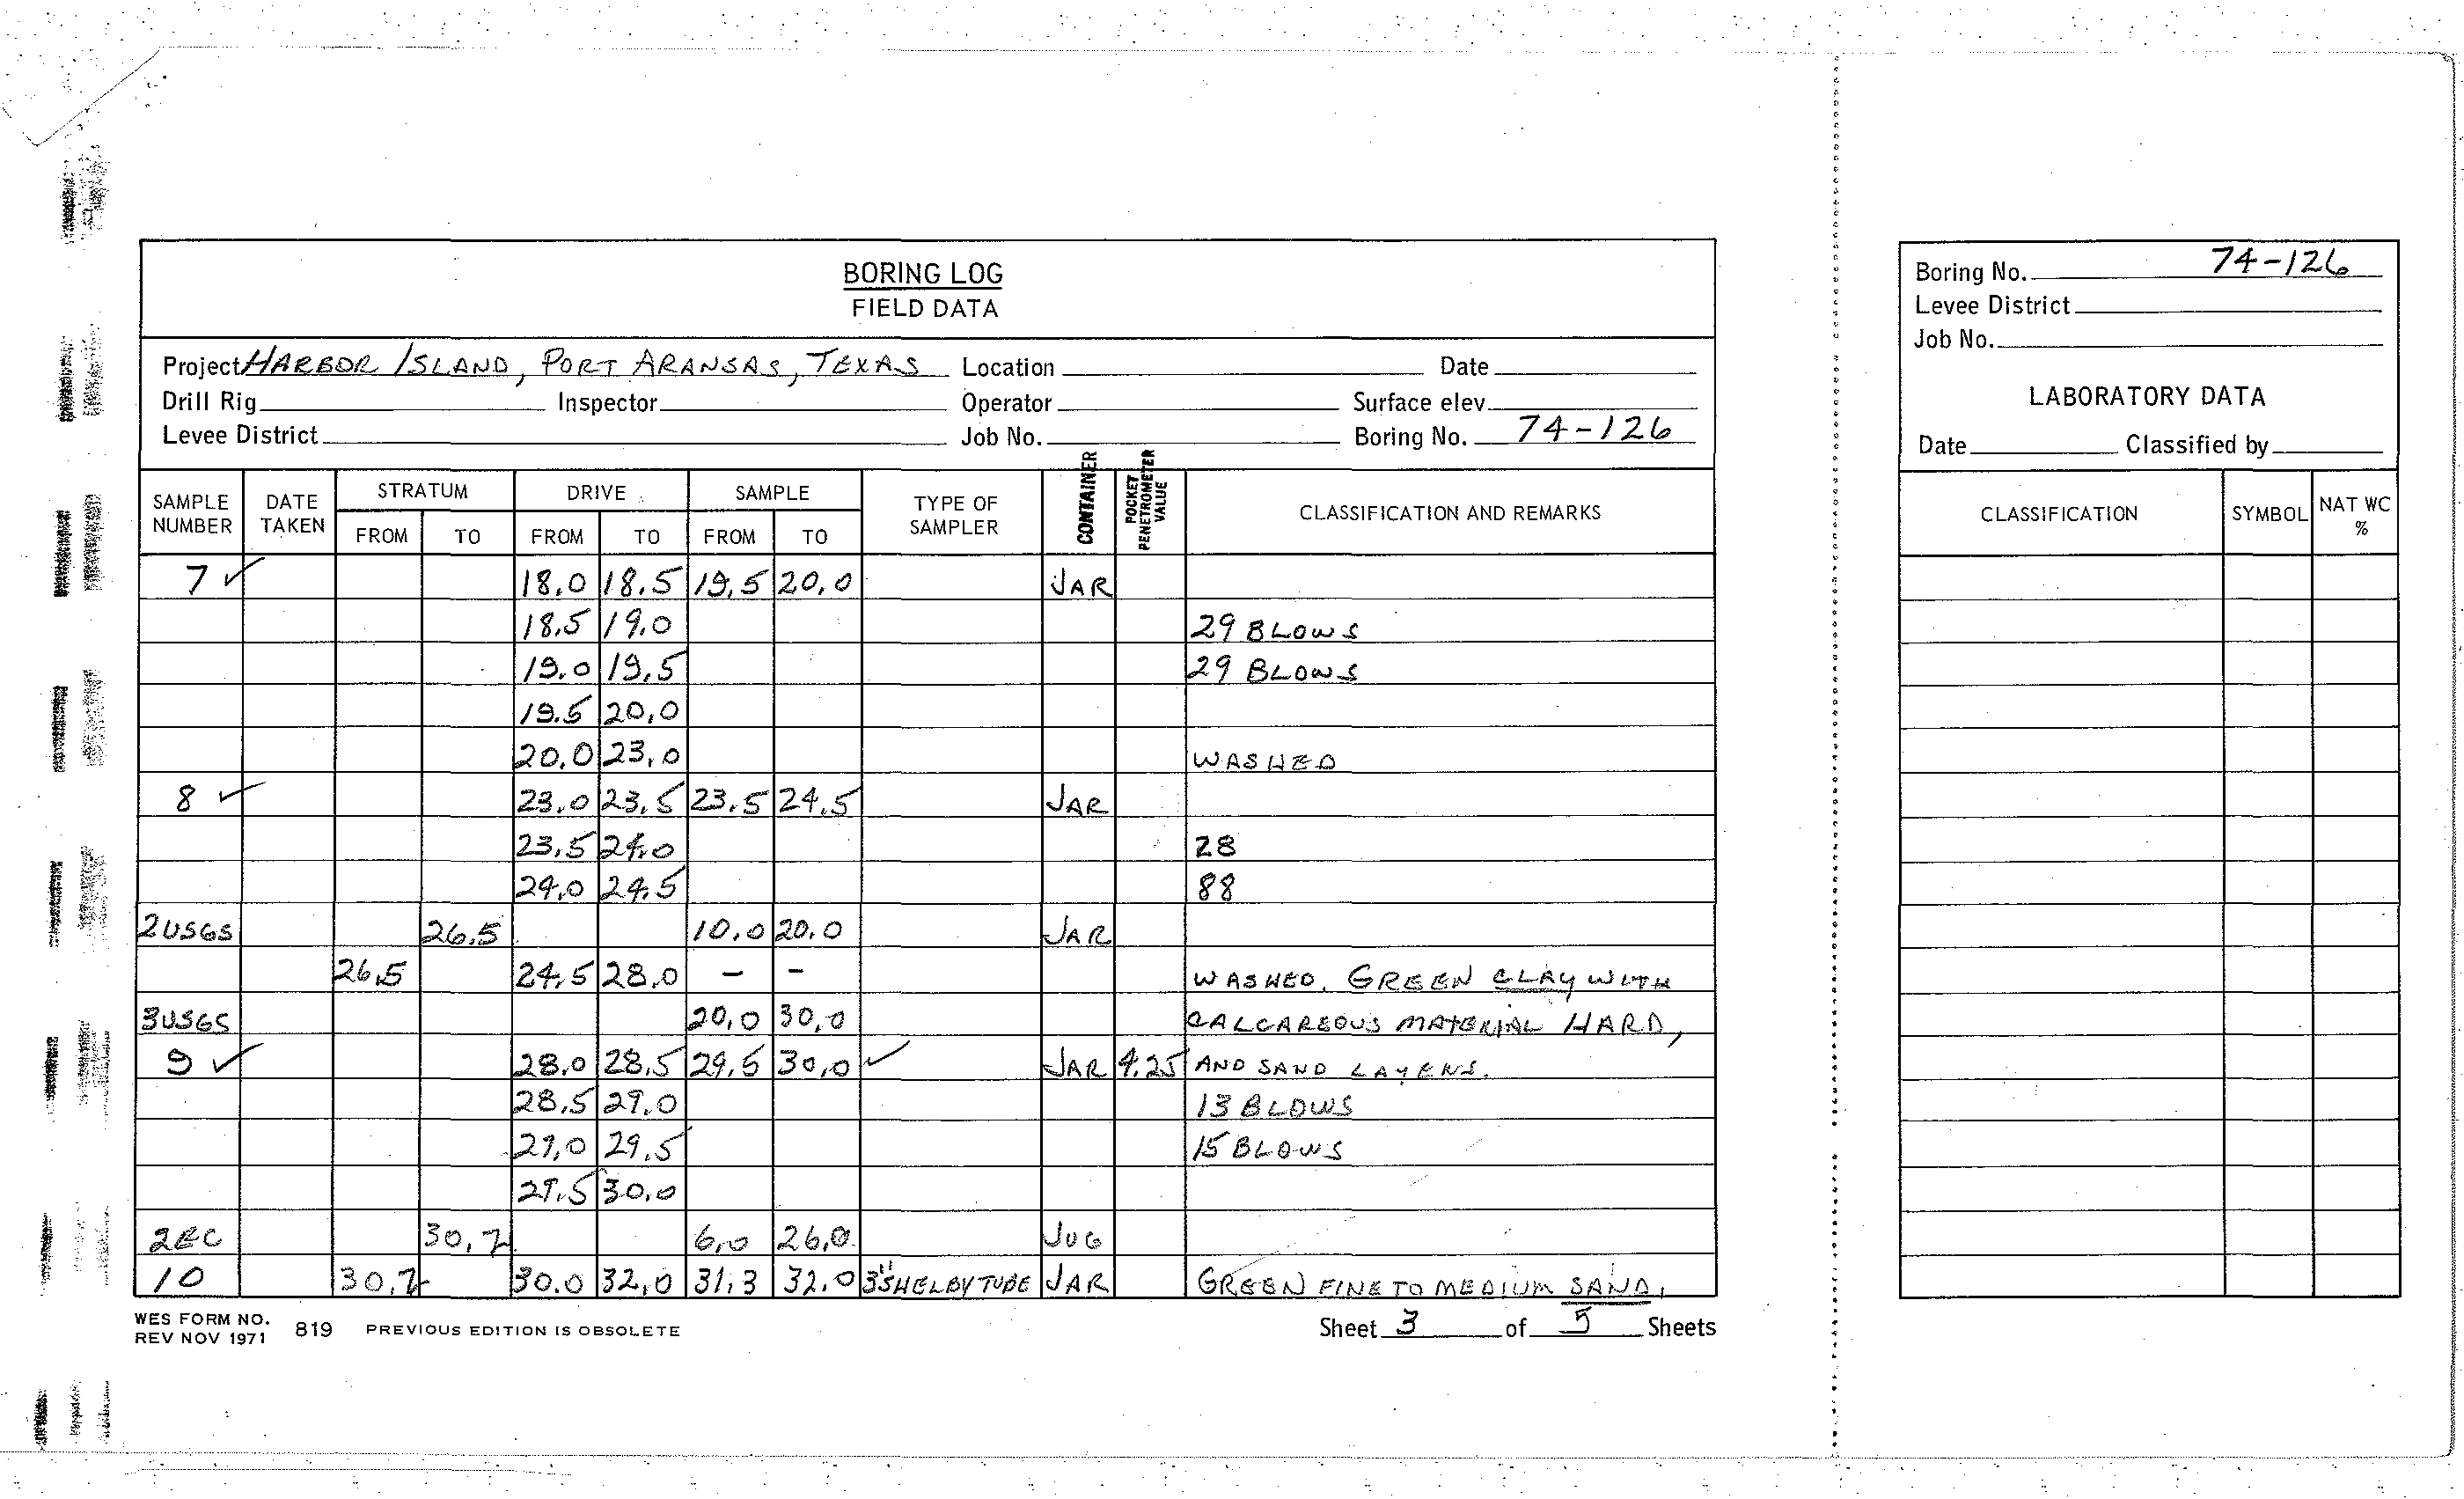 BORING LOG
FIELD DATA
Project HARBOR ISLAND, PORT ARANSAS, TEXAS Location Date
Drill Rig Inspector Operator Surface elev.
Levee District Job No. Boring No. 74-126
SAMPLE NUMBER DATE TAKEN STRATUM FROM TO DRIVE FROM TO SAMPLE FROM TO TYPE OF SAMPLER CONTAINER POCKET PENETROMETER VALUE CLASSIFICATION AND REMARKS
7 ✓ 18.0 18.5 19.5 20.0 JAR
18.5 19.0 29 BLOWS
19.0 19.5 29 BLOWS
19.5 20.0
20.0 23.0 WASHED
8 ✓ 23.0 23.5 23.5 24.5 JAR
23.5 24.0 28
24.0 24.5 88
2USGS 26.5 10.0 20.0 JAR
26.5 24.5 28.0 - - WASHED. GREEN CLAY WITH
3USGS 20.0 30.0 CALCAREOUS MATERIAL HARD,
9 ✓ 28.0 28.5 29.5 30.0 ✓ JAR 4.25 AND SAND LAYERS.
28.5 29.0 13 BLOWS
29.0 29.5 15 BLOWS
29.5 30.0
2EC 30.7 6.0 26.0 JUG
10 30.7 30.0 32.0 31.3 32.0 3" SHELBY TUBE JAR GREEN FINE TO MEDIUM SAND,
WES FORM NO. 819 PREVIOUS EDITION IS OBSOLETE
REV NOV 1971
Sheet 3 of 5 Sheets
Boring No. 74-126
Levee District
Job No.
LABORATORY DATA
Date Classified by
CLASSIFICATION SYMBOL NAT WC %